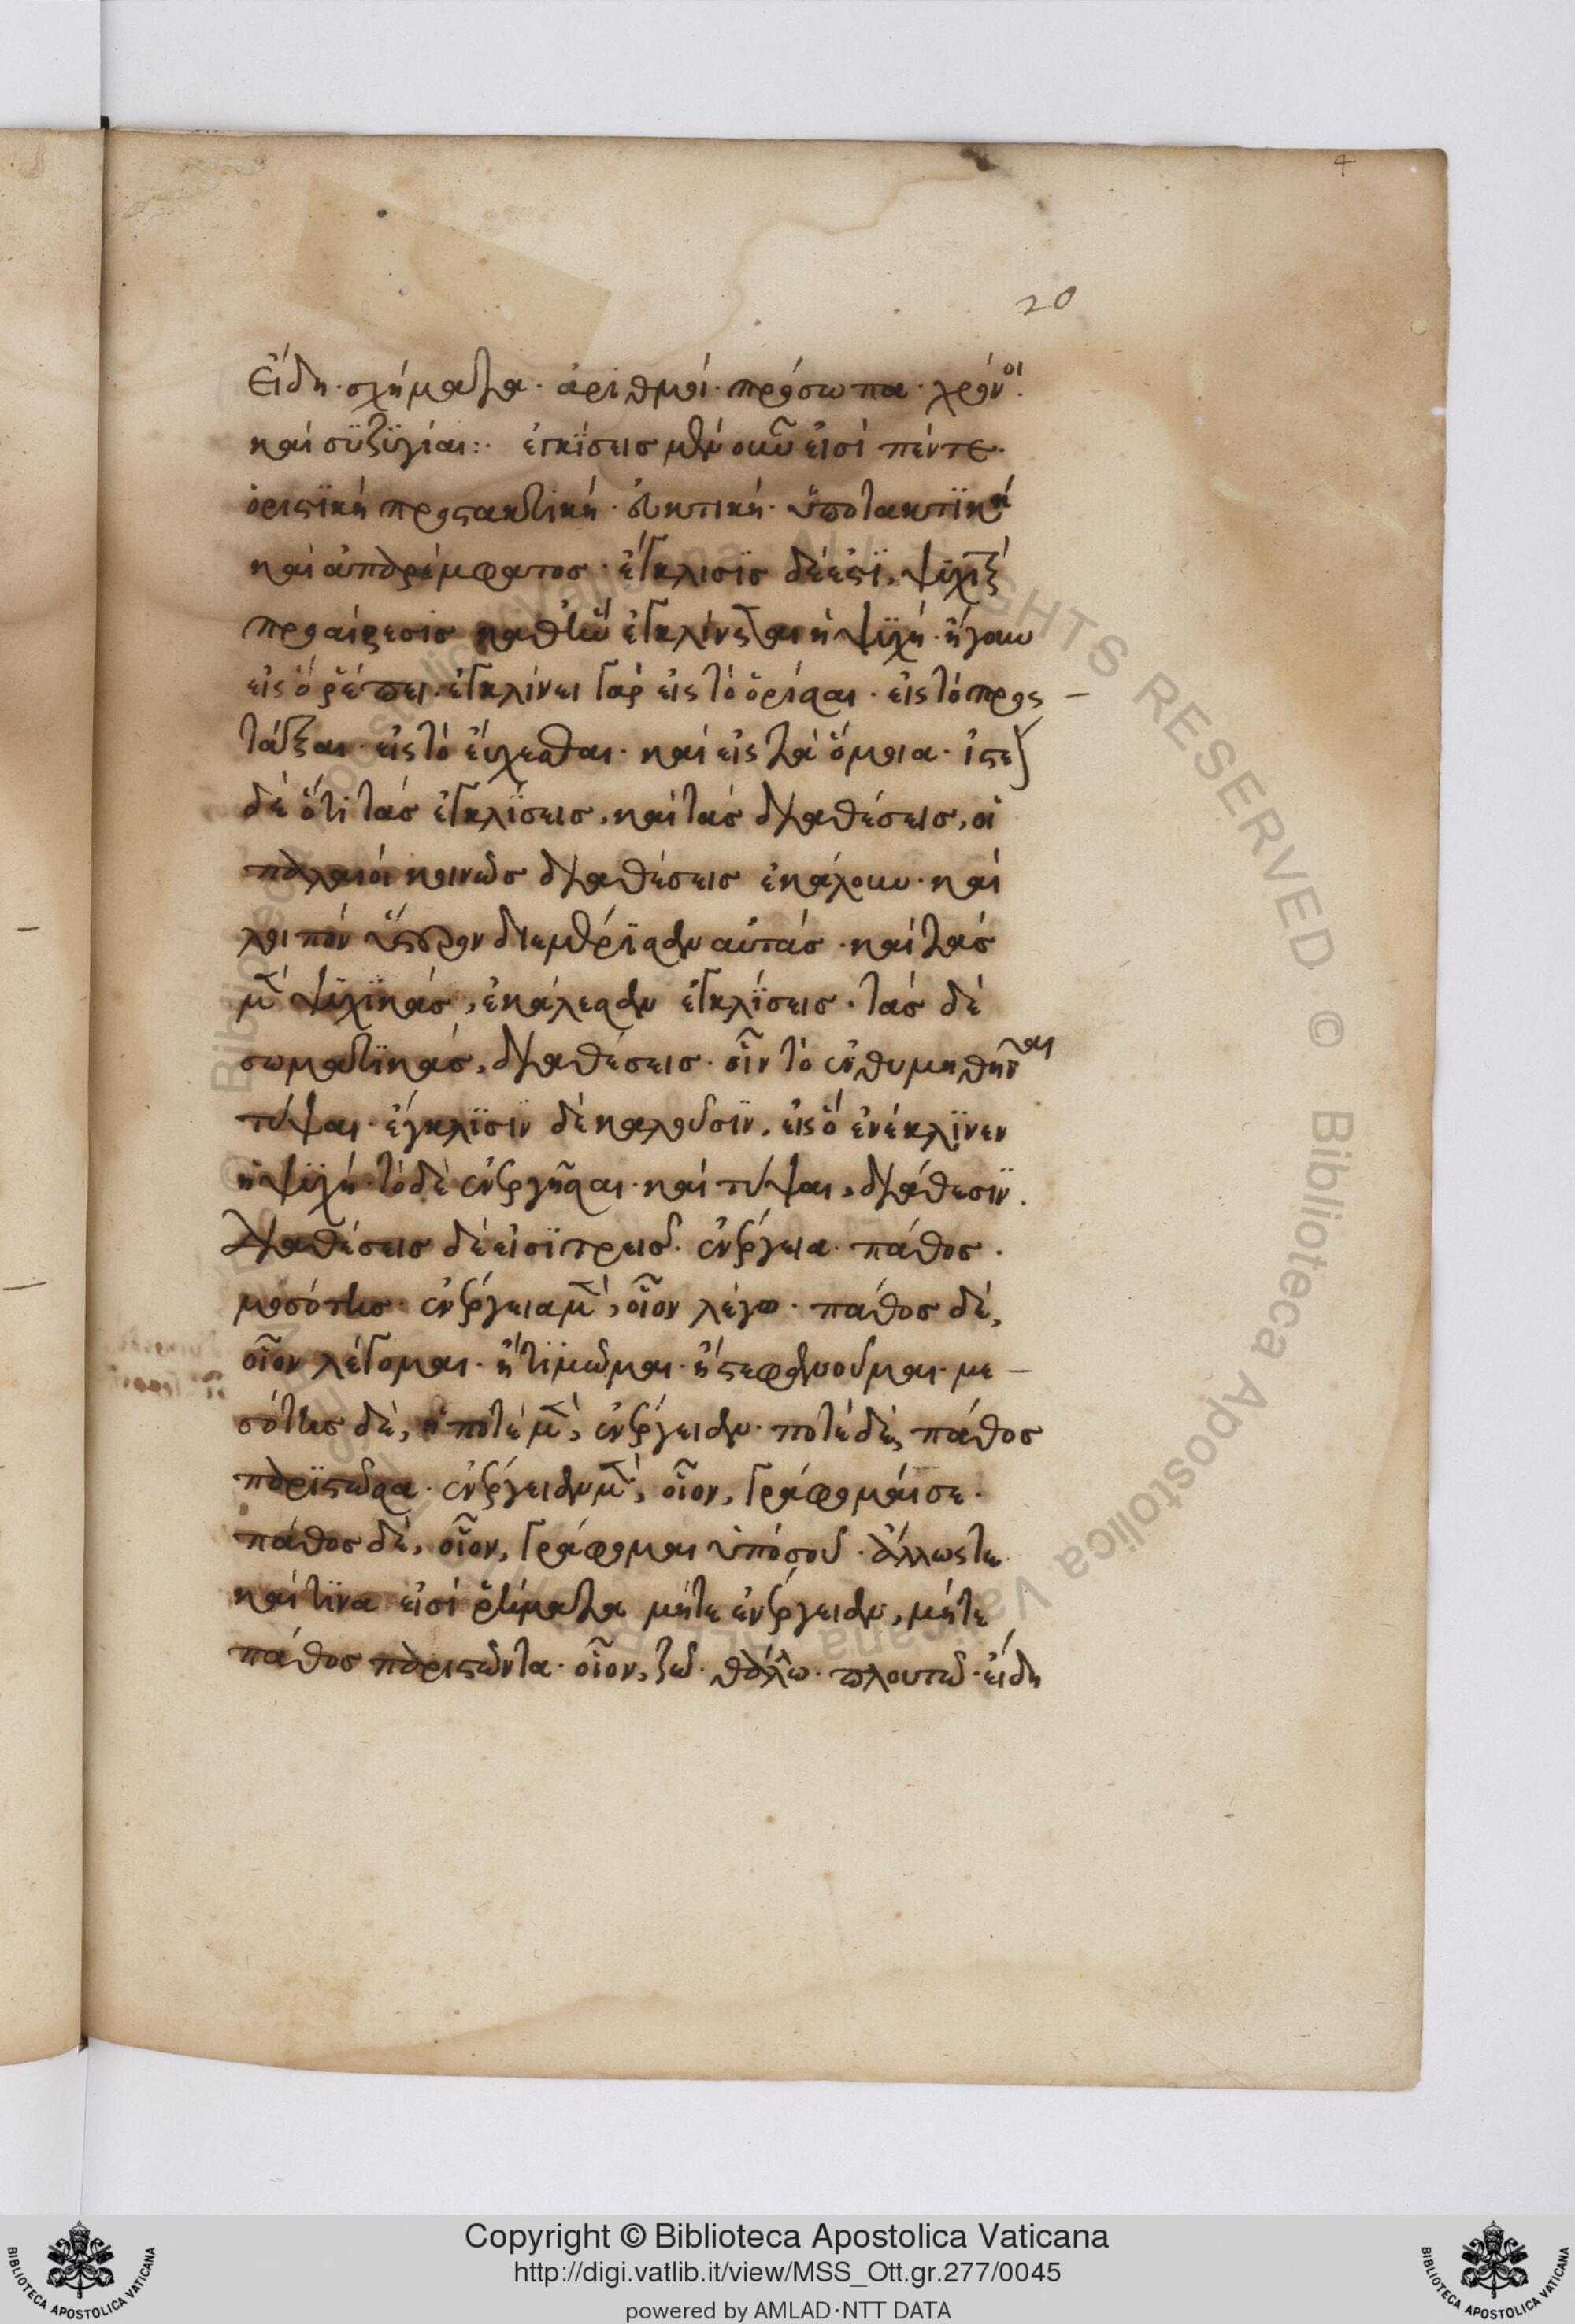 4
20
Εἴδη· σχήματα· ἀριθμοί· πρόσωπα· χρόνοι.
καὶ συζυγίαι:· ἐγκλίσεις μὲν οὖν εἰσὶ πέντε·
ὁριστικὴ προστακτική· εὐκτική· ὑποτακτικὴ
καὶ ἀπαρέμφατος· ἔγκλισις δέ ἐστι, ψυχῆς
προαίρεσις καθ' ἣν ἐγκλίνεται ἡ ψυχή· ἤγουν
εἰς ὃ ῥέπει· ἐγκλίνει γὰρ εἰς τὸ ὁρίσαι· εἰς τὸ προς –
τάξαι· εἰς τὸ εὔχεσθαι· καὶ εἰς τὰ ὅμοια· ἰστέ(ον)
δὲ ὅτι τὰς ἐγκλίσεις, καὶ τὰς διαθέσεις, οἱ
παλαιοὶ κοινῶς διαθέσεις ἐκάλουν· καὶ
λοιπὸν ὕστερον διεμέρισαν αὐτάς· καὶ τὰς
μὲν ψυχικάς, ἐκάλεσαν ἐγκλίσεις· τὰς δὲ
σωματικάς, διαθέσεις· οἷον τὸ ἐνθυμηθῆναι
τύψαι· ἔγκλισιν δὲ καλοῦσιν, εἰς ὃ ἐνέκλινεν
ἡ ψυχή· τὸ δὲ ἐνεργῆσαι· καὶ τύψαι, διάθεσιν.
Διαθέσεις δέ εἰσι τρεῖς· ἐνέργεια· πάθος·
μεσότης· ἐνέργεια μὲν, οἷον λέγω· πάθος δὲ,
οἷον λέγομαι· ἢ τιμῶμαι· ἢ στεφανοῦμαι· με –
σότης δὲ, ἡ ποτὲ μὲν, ἐνέργειαν· ποτὲ δὲ, πάθος
παριστῶσα· ἐνέργειαν μὲν, οἷον, γράφομαί σε·
πάθος δὲ, οἷον, γράφομαι ὑπὸ σοῦ· ἄλλως τε
καί τινα εἰσὶ ῥήματα μήτε ἐνέργειαν, μήτε
πάθος παριστῶντα· οἷον, ζῶ· θάλλω· πλουτῶ· εἴδη
Copyright © Biblioteca Apostolica Vaticana
http://digi.vatlib.it/view/MSS_Ott.gr.277/0045
powered by AMLAD·NTT DATA
BIBLIOTECA APOSTOLICA VATICANA
BIBLIOTECA APOSTOLICA VATICANA